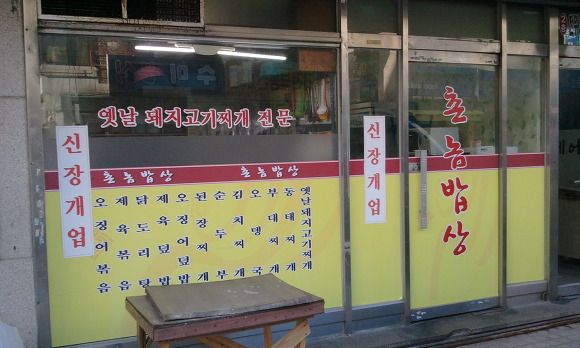 옛날 돼지고기찌개 전문
신장개업
촌놈밥상
촌놈밥상
오징어볶음
제육볶음
닭도리탕
제육덮밥
오징어덮밥
된장찌개
순두부
김치찌개
오뎅국
부대찌개
동태찌개
옛날돼지고기찌개
신장개업
촌놈밥상